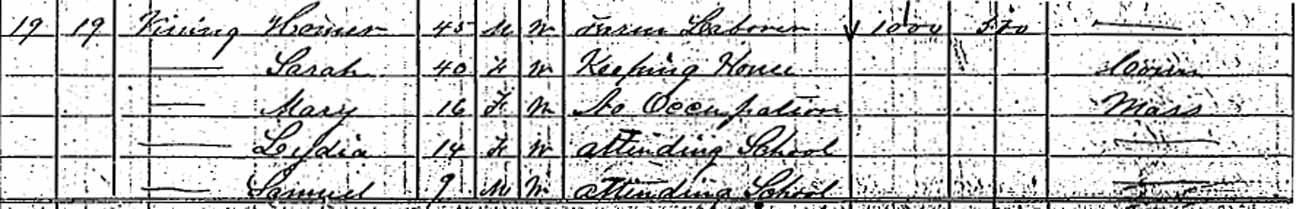 19 19 Vining Homer 45 M W Farm Laborer 1000 500 —
— Sarah 40 F W Keeping House Conn
— Mary 16 F W No Occupation Mass
— Lydia 14 F W attending School —
— Samuel 9 M W attending School —